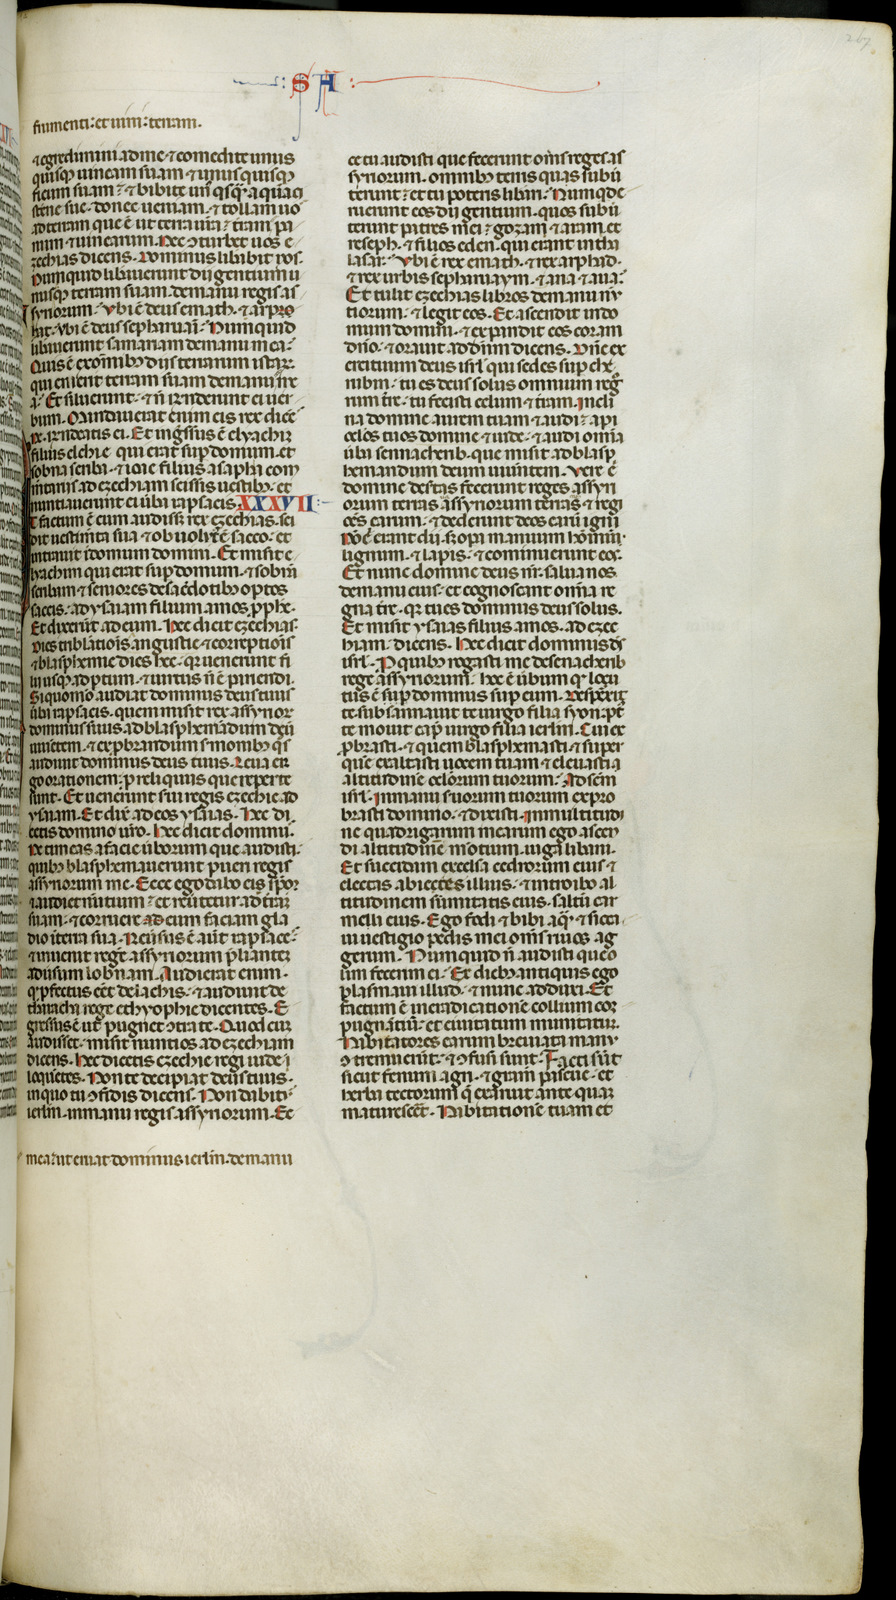 267
S A
frumenti: et uini: terram.
⁊ egredimini ad me ⁊ comedite unus
quisq; uineam suam ⁊ unusquisq;
ficum suam: ⁊ bibite un qsq aquam
sterne sue. donec ueniam. ⁊ tollam uos
ad terram que ē ut terra uīa: terrā fru
mīn ⁊ uinearum. Nec ɔturbet uos e
zechias dicens. Dominus liberabit uos.
Numquid liberauerunt dii gentium u
nusq; terram suam. de manu regis as
syriorum. Vbi ē deus emath. ⁊ arpro
hat. vbi ē deus sepharuaī. Numquid
liberauerunt samariam de manu mea.
Quis ē ex oīmib; diis terrarum istaꝝ.
qui eruerit terram suam de manu me
a. Et siluerunt. ⁊ n̄ rn̄derunt ei uer
bum. Mandauerat enim eis rex dicē
Ne rn̄deatis ei. Et ingr̄ssus ē elyachiz
filius elchie qui erat sup domum. et
sobna scriba. ⁊ ioae filius asaphi com
mtaris ad ezechiam scissis uestib;. et
nuntiauerunt ei ūba rapsacis. XXXVII
Et factum ē cum audiss; rex ezechias. sci
dit uestimta sua ⁊ obuolut ē sacco. et
intrauit ī domum domini. Et misit e
lyachim qui erat sup domum. ⁊ sobnā
scribam ⁊ seniores de sacdotib; optos
saccis. ad ysaiam filium amos. pphē.
Et dixerūt ad eum. Hec dicit ezechias.
Dies tribulationis angustie ⁊ correptionis
⁊ blasphemie dies hec. qr uenerunt fi
lii usq; ad ptum. ⁊ uirtus n̄ ē pariendi.
Si quomo audiat dominus deus tuus
ūba rapsacis. quem misit rex assyrior
dominus suus ad blasphemādum deū
uiuētem. ⁊ exprobrandum smonib; qs
audiuit dominus deus tuus. Leua er
go orationem: p reliquiis que reperte
sunt. Et uenerunt sui regis ezechie ad
ysaiam. Et dix ad eos ysaias. Hec di
cetis domino uro. Hec dicit dominus.
Ne timeas a facie ūborum que audisti.
quib; blasphemauerunt pueri regis
assyriorum me. Ecce ego dabo eis spm.
⁊ audiet nūtium: et reūtetur ad terrā
suam. ⁊ corruere eum faciam gla
dio ī terra sua. Reūsus ē aut rapsaces.
⁊ inuenit regē assyriorum pliantē
adūsum lobnam. Audierat enim.
qr pfectus eēt de lachis. ⁊ audiuit de
tharacha rege ethyophie dicentes. E
gressus ē ut pugnet ɔtra te. Quod cum
audisset. misit nuntios ad ezechiam
dicens. Hec dicetis ezechie regi iude
loquētes. Non te decipiat deus tuus.
in quo tu ɔfidis dicens. Non dabit
ierlm. in manu regis assyriorum. Ec
mea: ut eruat dominus ierlm. de manu
ce tu audisti que fecerunt oms reges as
syriorum. omnib; terris quas subū
terunt: et tu poteris libari. Numq; de
uerunt eos dii gentium. quos subū
terunt patres mei: gozam ⁊ aram et
reseph. ⁊ filios eden. qui erant in tha
lasar. Vbi ē rex emath. ⁊ rex arphad.
⁊ rex urbis sepharuaym. ⁊ ana ⁊ aua.
Et tulit ezechias libros de manu nū
tiorum. ⁊ legit eos. Et ascendit in do
mum domini. ⁊ expandit eos coram
dn̄o. ⁊ orauit ad dn̄m dicens. Dn̄e ex
ercituum deus isrl qui sedes sup che
rubim. tu es deus solus omnium regn̄
rum tre. tu fecisti celum ⁊ trram. Incli
na domine aurem tuam ⁊ audi: api
oclos tuos domine ⁊ uide. ⁊ audi omīa
ūba sennacherib. que misit ad blasp
hemandum deum uiuentem. Vere ē
domine desertas fecerunt reges assyri
orum terras assyriorum terras ⁊ regi
oēs earum. ⁊ dederunt deos earū igni
Nō ē erant dii. s; opa manuum hominū.
lignum. ⁊ lapis. ⁊ cominuerunt eos.
Et nunc domine deus nr. salua nos
de manu eius. et cognoscant omīa re
gna tre. qr tu es dominus deus solus.
Et misit ysaias filius amos. ad ezec
hiam. dicens. Hec dicit dominus ds
isrl. P quib; rogasti me de senacherib
regē assyriorum: hoc ē ūbum qr locu
tus ē sup dominus sup eum. Despexit
te subsannauit te uirgo filia syon. pt
te mouit cap uirgo filia ierlm. Cui ex
probrasti. ⁊ quem blasphemasti ⁊ super
quē exaltasti uocem tuam ⁊ eleuasti a
altitudinē oclorum tuorum. Ad scm
isrl. In manu suorum tuorum expro
brasti domino. ⁊ dixisti. In multitudi
ne quadrigarum mearum ego ascen
di altitudinē mōtium. iuga libani.
Et succidam excelsa cedrorum eius ⁊
electas abietes illius. ⁊ introibo al
titudinem sūmitatis eius. saltū car
meli eius. Ego fodi ⁊ bibi aq̄. ⁊ sicca
ui uestigio pedis mei oms riuos ag
gerum. Numquid n̄ audisti que o
lim fecerim ei. Ex dieb; antiquis ego
plasmaui illud. ⁊ nunc adduxi. Et
factum ē in eradicationē collium com
pugnātiū. et ciuitatum munitarum.
Habitatores earum breuiata manu
ɔtremuerūt. ⁊ ɔfusi sunt. Facti sūt
sicut fenum agri. ⁊ gramē pascue. et
herba tectorum q̄ exaruit ante quam
maturesceret. Habitationē tuam et